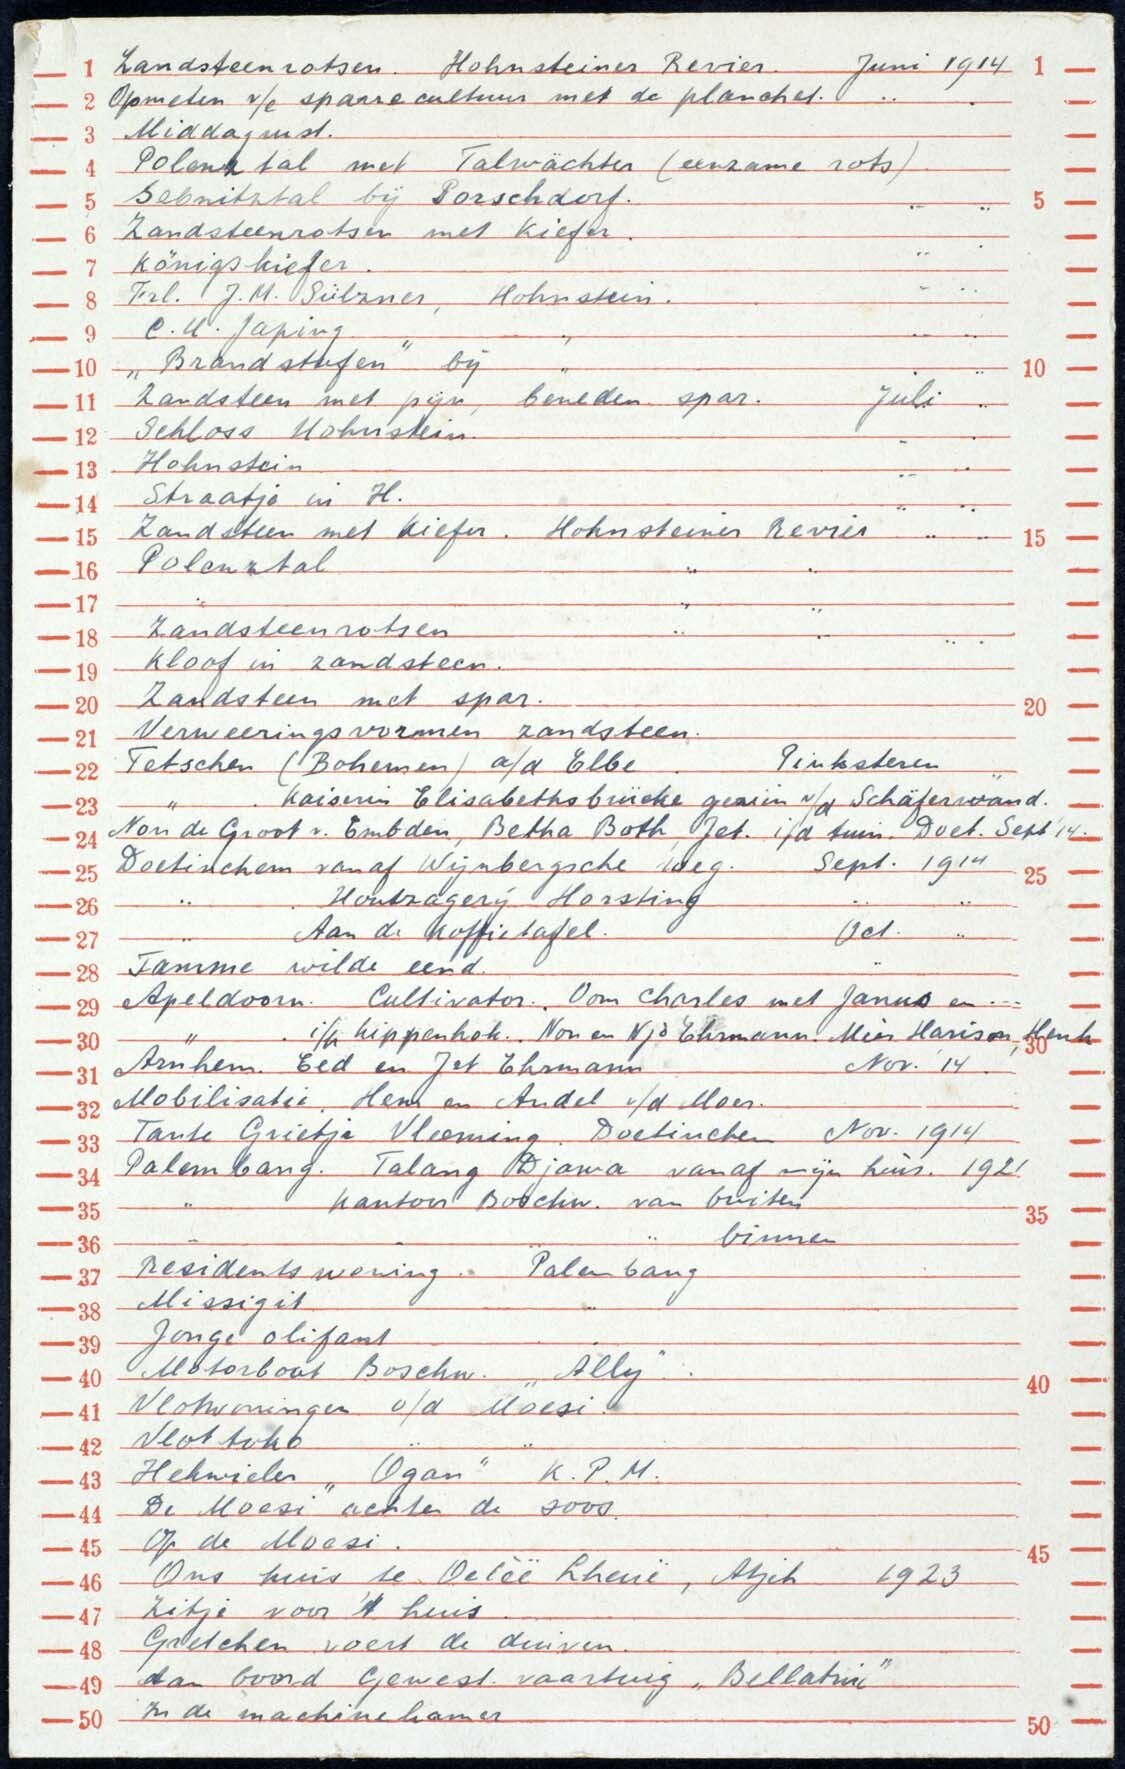 1 Zandsteenrotsen. Hohnsteiner Revier. Juni 1914 1
2 Opmeten v/e sparrecultuur met de planchet. " "
3 Middagrust.
4 Polenztal met Talwächter (eenzame rots)
5 Sebnitztal bij Porschdorf. " " 5
6 Zandsteenrotsen met Kiefer.
7 Königskiefer. "
8 Frl. J.M. Sülzner, Hohnstein. " "
9 C.U. Japing " " "
10 „Brandstufen" bij " " 10
11 Zandsteen met pijn, beneden spar. Juli "
12 Schloss Hohnstein. " "
13 Hohnstein " "
14 Straatje in H. " "
15 Zandsteen met Kiefer. Hohnsteiner Revier " " 15
16 Polenztal " "
17 " " "
18 Zandsteenrotsen " " " "
19 Kloof in zandsteen.
20 Zandsteen met spar. 20
21 Verweeringsvormen zandsteen.
22 Tetschen (Bohemen) a/d Elbe. Pinksteren
23 " . Kaiserin Elisabethsbrücke gezien v/d Schäferwand. "
24 Non de Groot v. Embden, Betha Both, Jet. i/d tuin. Doet. Sept '14.
25 Doetinchem vanaf Wijnbergsche weg. Sept. 1914 25
26 " . Houtzagerij Horsting " "
27 " Aan de koffietafel. Oct. "
28 Tamme wilde eend. "
29 Apeldoorn. Cultivator. Oom Charles met Janus en ...
30 " . i/h kippenhok. Non en Njo Ehrmann. Mies Harison, Henk 30
31 Arnhem. Eed en Jet Ehrmann Nov. '14.
32 Mobilisatie. Hem en Andel v/d Moer.
33 Tante Grietje Vleeming. Doetinchem Nov. 1914
34 Palembang. Talang Djawa vanaf mijn huis. 1921
35 " Kantoor Boschw. van buiten 35
36 " " " " binnen
37 Residentswoning. Palembang
38 Missigit "
39 Jonge olifant "
40 Motorboot Boschw. „Ally". 40
41 Vlotwoningen o/d Moesi.
42 Vlottoko " "
43 Hekwieler „Ogan" K.P.M.
44 De Moesi achter de soos.
45 Op de Moesi. 45
46 Ons huis te Oeleë Lheuë, Atjeh 1923
47 Zitje voor 't huis.
48 Gretchen voert de duiven.
49 Aan boord Gewest. vaartuig „Bellatrix"
50 In de machinekamer 50